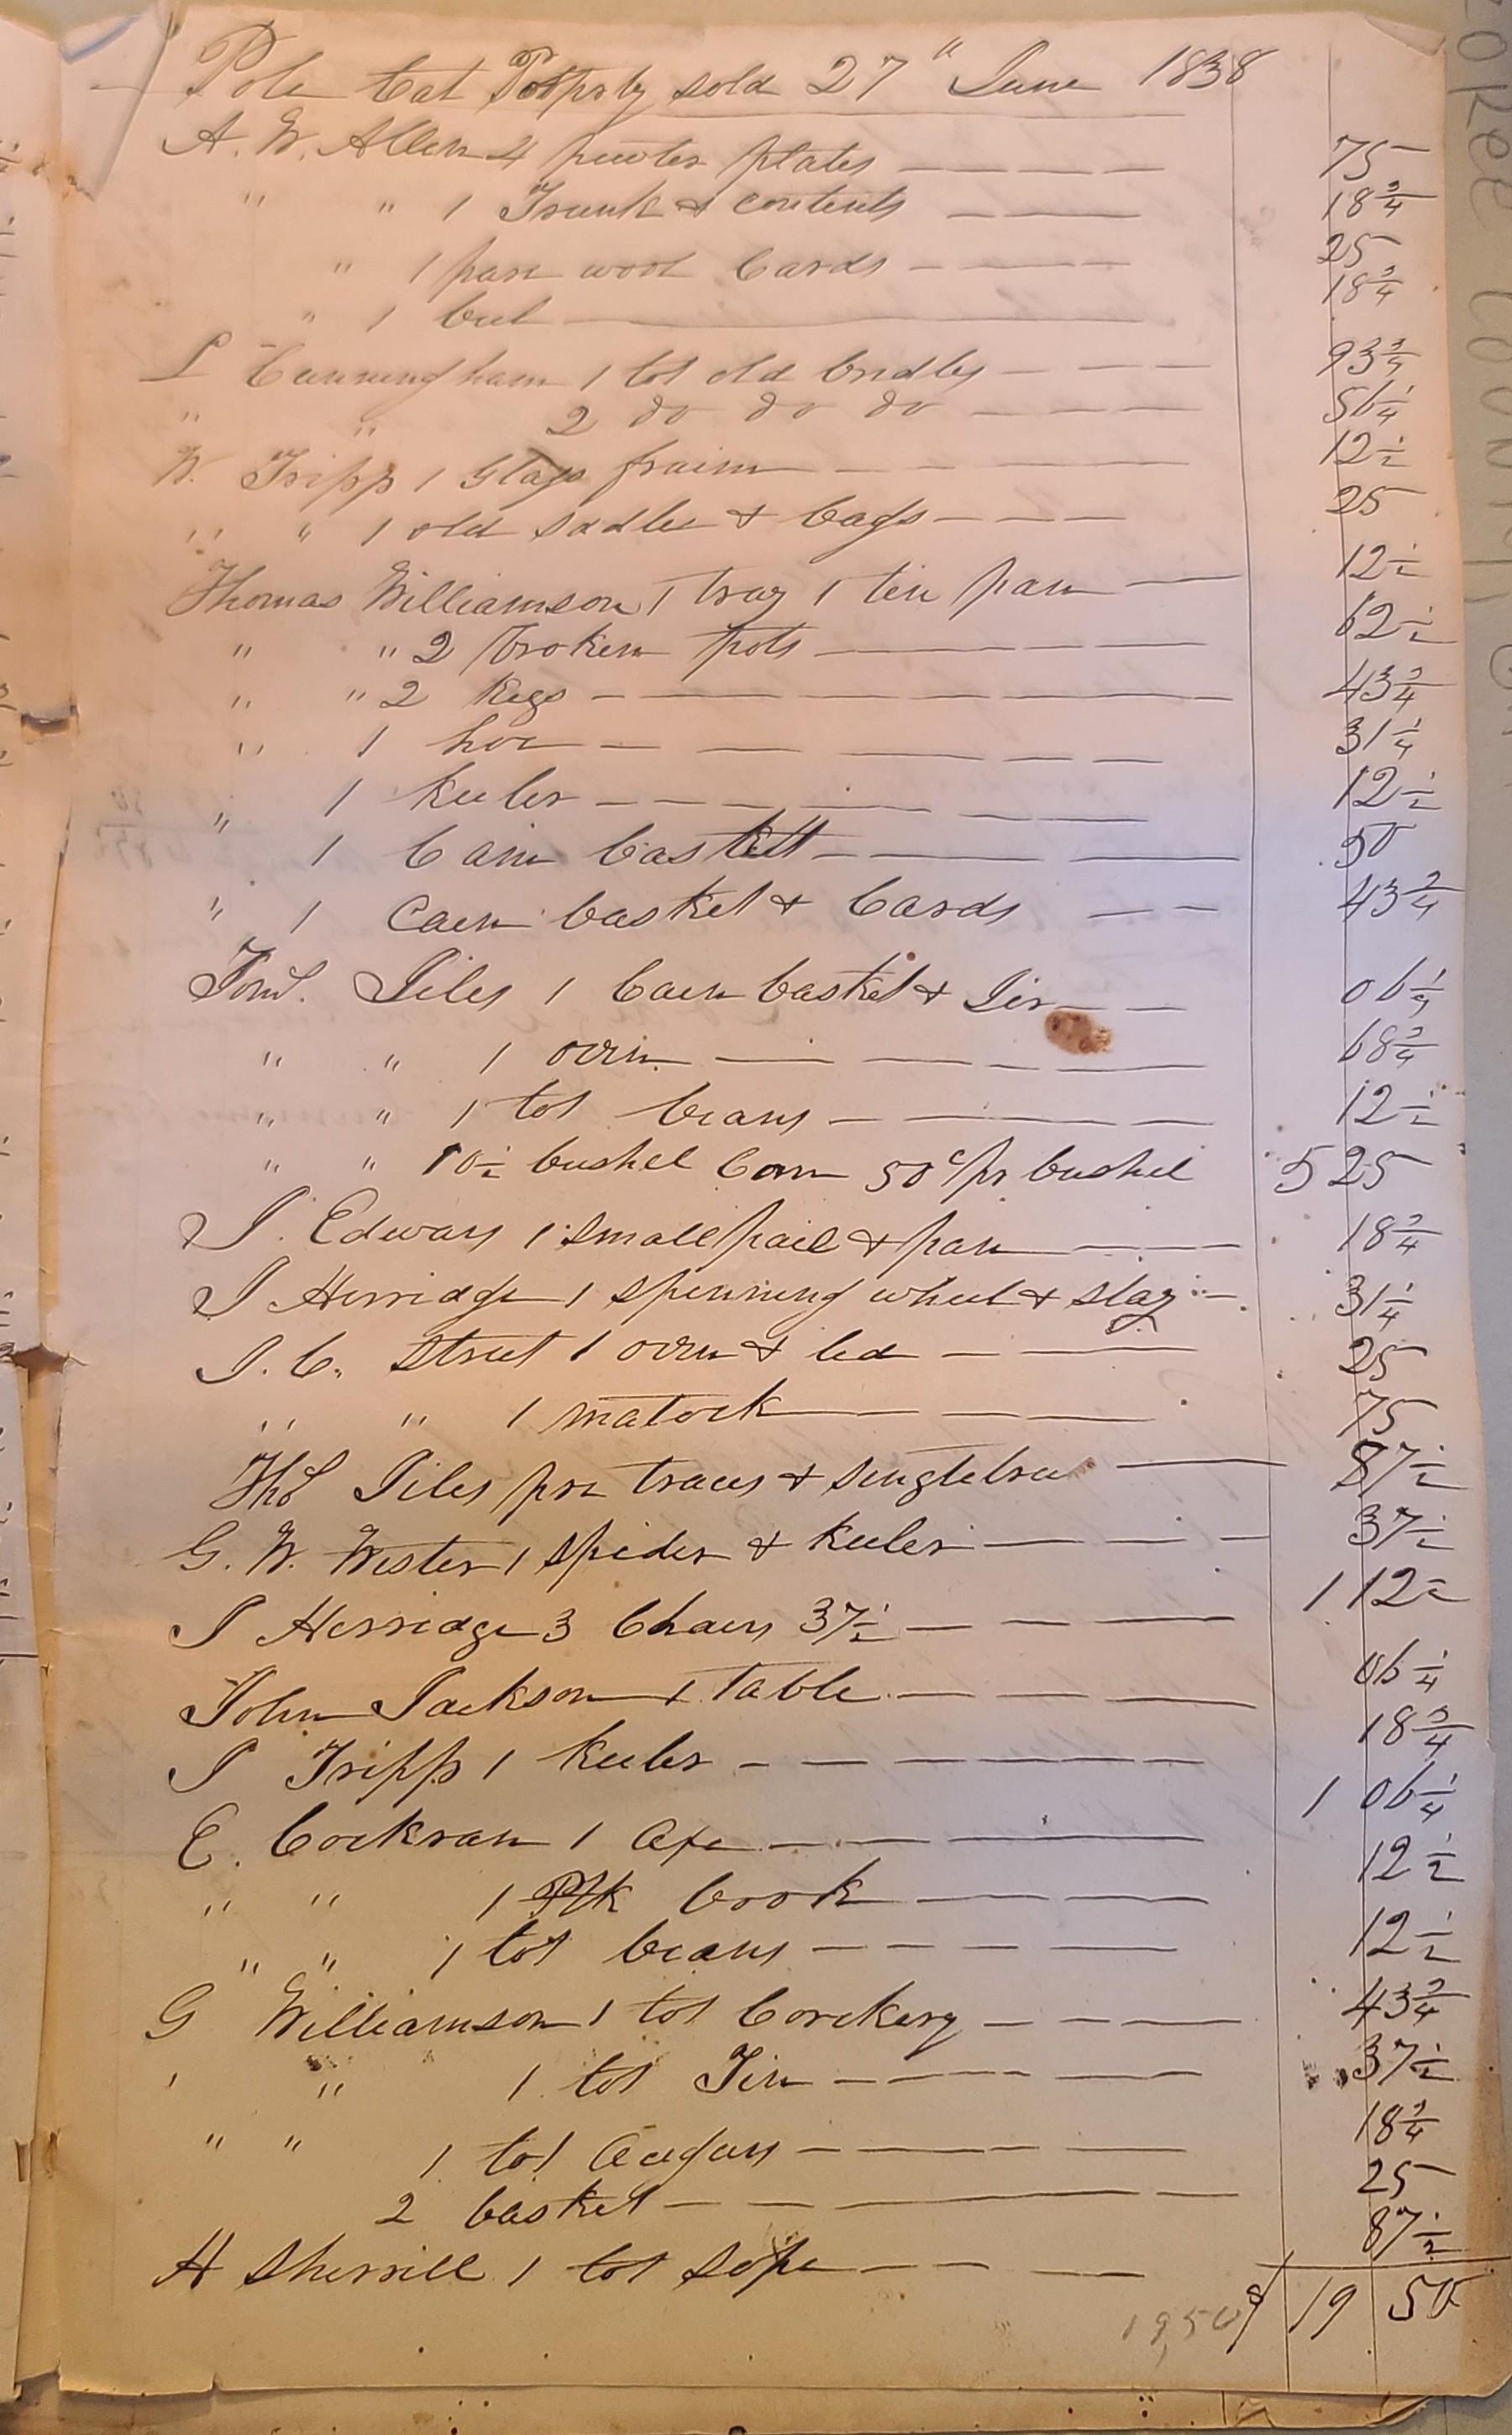 Pole Cat Propsty sold 27" June 1838
A. W. Allen 4 pewter plates — — — — 75
" " 1 Trunk & contents — — — 18 3/4
" 1 pare wool Cards — — — — 25
" 1 bed — 18 3/4
Cunningham 1 lot old bridles — — — 93 3/4
" " 2 do do do — — — — 56 1/4
W. Tripp 1 Glass fraim — — — — 12 1/2
" " 1 old sadle & bags — — — 25
Thomas Williamson 1 tray 1 tin pan — 12 1/2
" " 2 broken pots — — — — 62 1/2
" " 2 Kegs — — — — — — 43 3/4
" 1 hoe — — — — — — 31 1/4
" 1 Keeler — — — — — — 12 1/2
" 1 Cain baskett — — — 50
" 1 Caen basket & Cards — — 43 3/4
Giles 1 Caen basket & — — 06 1/4
" " 1 oven — — — — — 68 3/4
" " 1 lot beans — — — — 12 1/2
" " 10 1/2 bushel Corn 50 c pr bushel 5 25
J. Edwars 1 small pail & pan — — 18 3/4
J Herridge 1 spinning wheel & slay — 31 1/4
J. C. Street 1 oven & led — — — 25
" " 1 matock — — — — 75
Thos Giles pr traces & singletree — 87 1/2
G. W. Wester 1 spider & Keeler — — — 37 1/2
J Herridge 3 Chairs 37 1/2 — — — 1 12 1/2
John Jackson 1 Table — — — — 06 1/4
J Tripp 1 Keeler — — — — — 18 3/4
E. Cockran 1 Axe — — — — 1 06 1/4
" " 1 Pk book — — — 12 1/2
" " 1 lot beans — — — — 12 1/2
G Williamson 1 lot Corckery — — — — 43 3/4
" " 1 lot Tin — — — — 37 1/2
" " 1 lot Augurs — — — — 18 3/4
2 basket — — — — 25
H Sherrill 1 lot sope — — — 87 1/2
19,50 $ 19 50